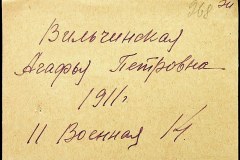 268
Вильчинская
Агафья Петровна
1911г
11 Военная 14.